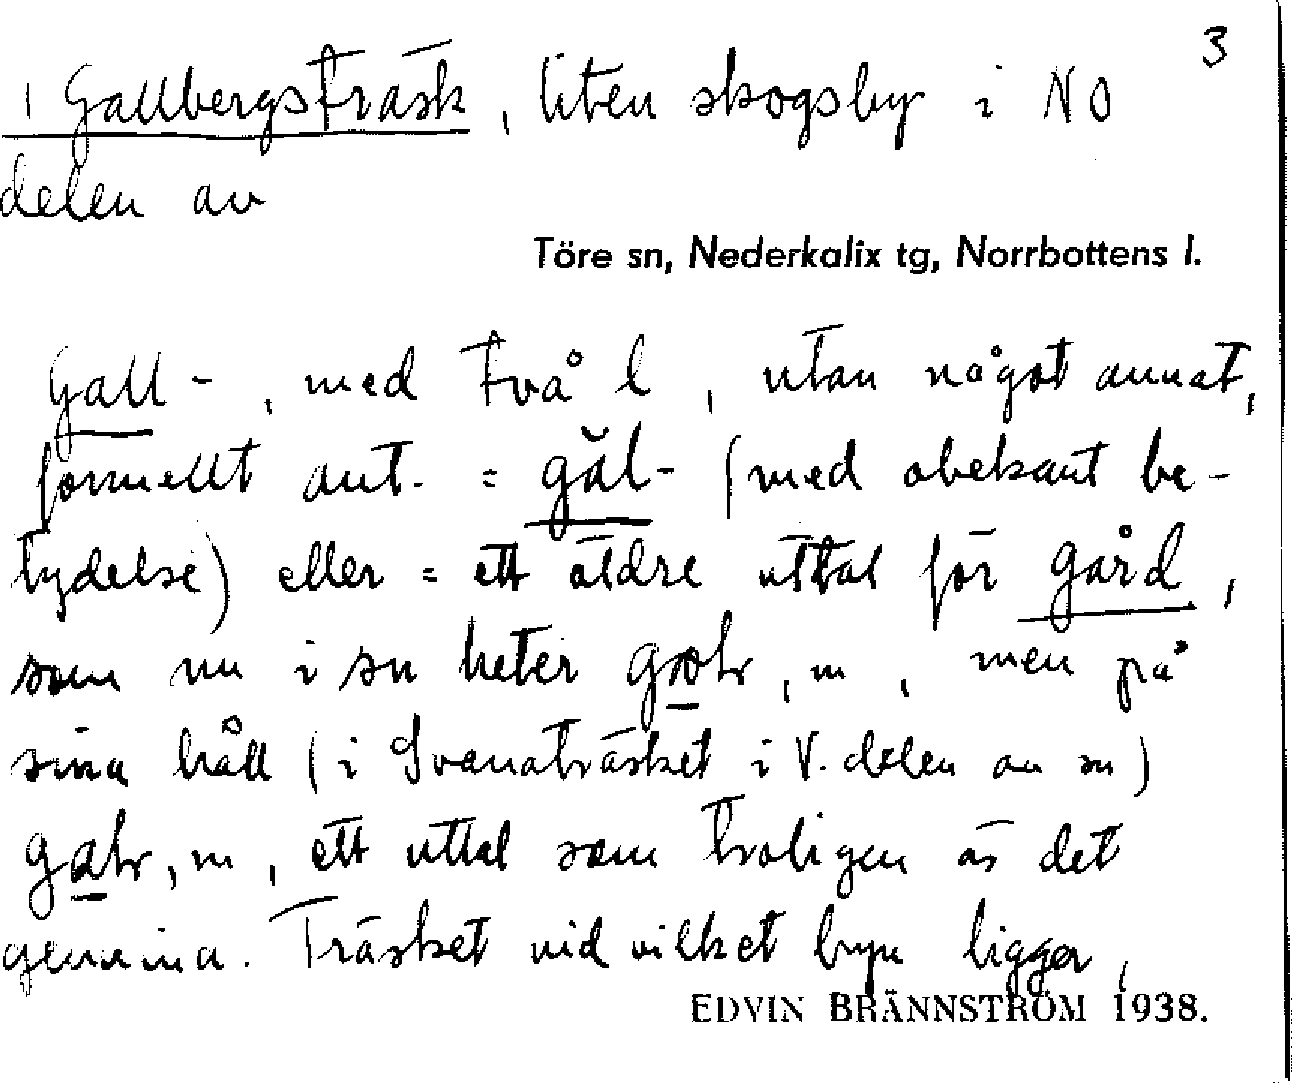 3
i Gallbergsträsk, liten skogsby i NO
delen av
Töre sn, Nederkalix tg, Norrbottens l.
Gall-, med två l, utan något annat,
formellt ant. = găl- (med obekant be-
tydelse) eller = ett äldre uttal för gård,
som nu i sn heter gælr, m, men på
sina håll (i Svanaträsket i V. delen av sn)
galr, m, ett uttal som troligen är det
genuina. Träsket vid vilket byn ligger,
EDVIN BRÄNNSTRÖM 1938.